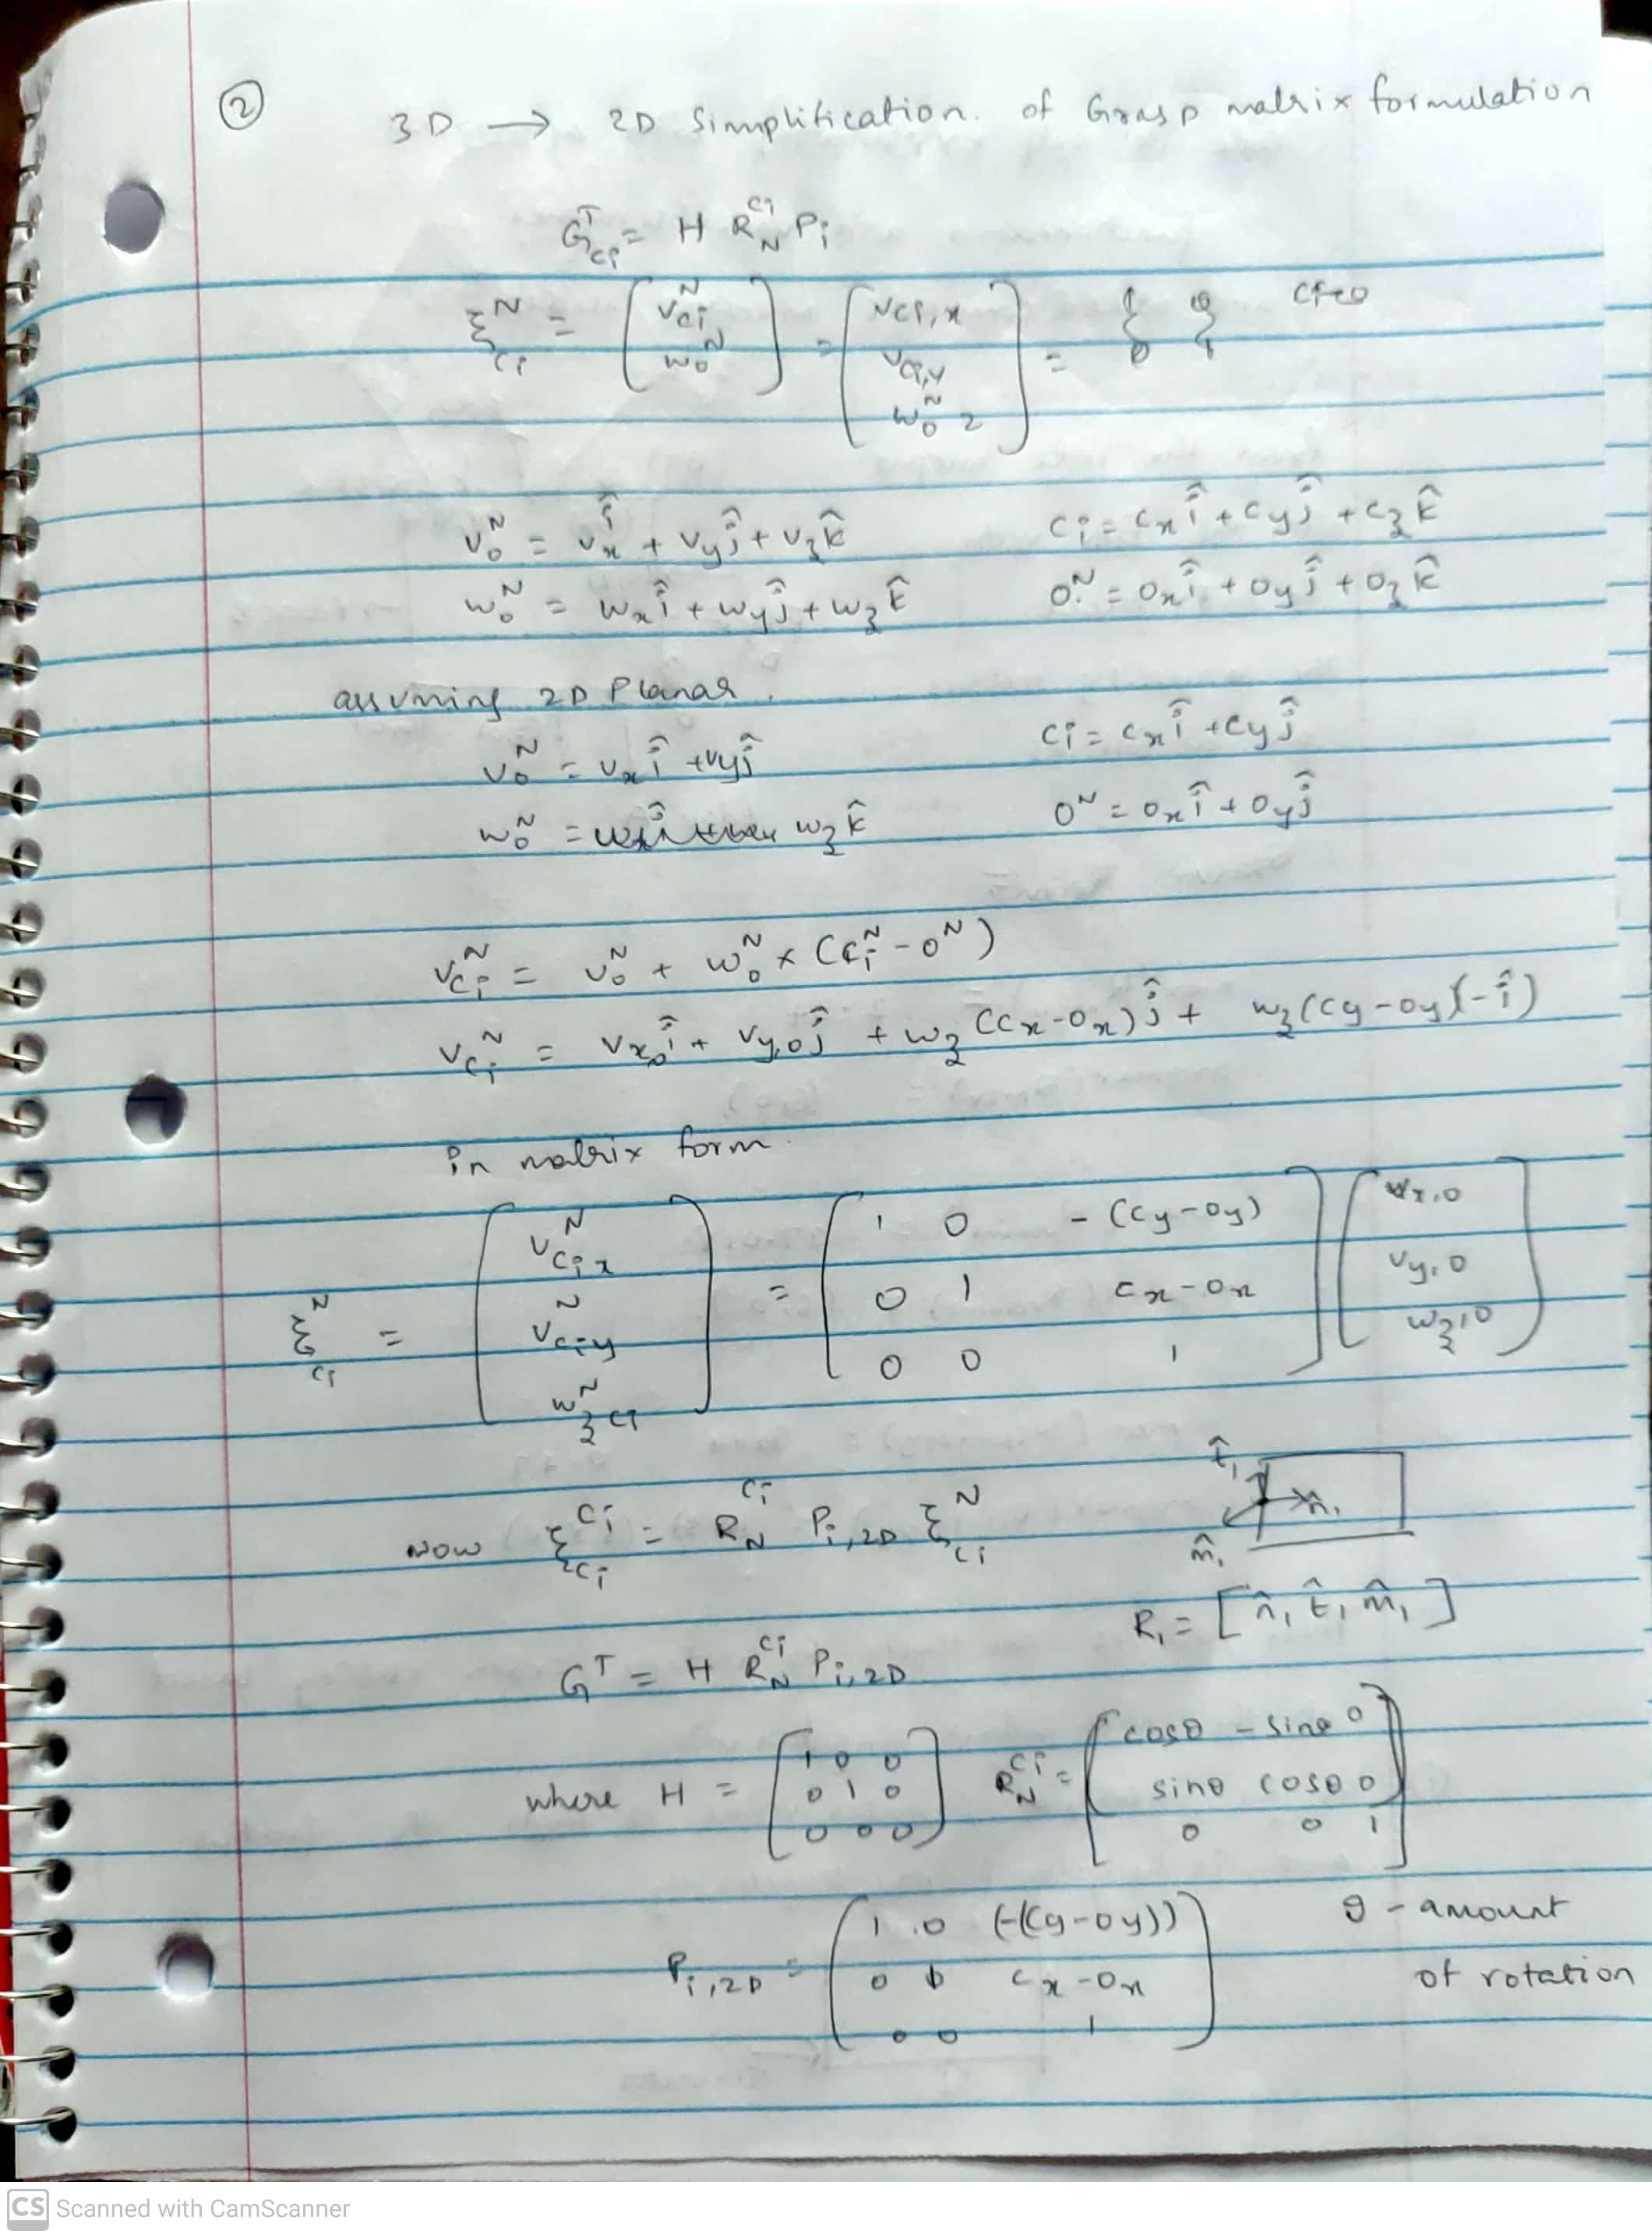 ②
3D → 2D Simplification. of Grasp matrix formulation
G^T_ci = H R_N^ci P_i
ξ^N_ci = [ v^N_ci ; w^N_0 ] = [ v_ci,x ; v_ci,y ; w^N_0 z ] =
v^N_0 = v_x î + v_y ĵ + v_z k̂    c_i = c_x î + c_y ĵ + c_z k̂
w^N_0 = w_x î + w_y ĵ + w_z k̂    o^N = o_x î + o_y ĵ + o_z k̂
assuming 2D Planar.
v^N_0 = v_x î + v_y ĵ    c_i = c_x î + c_y ĵ
w^N_0 = w_z k̂    o^N = o_x î + o_y ĵ
v^N_ci = v^N_0 + w^N_0 x (c_i^N - o^N)
v^N_ci = v_x,0 î + v_y,0 ĵ + w_z (c_x - o_x) ĵ + w_z (c_y - o_y)(-î)
in matrix form.
ξ^N_ci = [ v^N_ci x ; v^N_ci y ; w^N_z ci ] = [ 1 0 -(c_y - o_y) ; 0 1 c_x - o_x ; 0 0 1 ] [ v_x,0 ; v_y,0 ; w_z,0 ]
t̂_1
n̂_1
m̂_1
Now ξ^ci_ci = R_N^ci P_i,2D ξ^N_ci
R_1 = [ n̂_1 t̂_1 m̂_1 ]
G^T = H R_N^ci P_i,2D
where H = [ 1 0 0 ; 0 1 0 ; 0 0 0 ]  R_N^ci = [ cosθ -sinθ 0 ; sinθ cosθ 0 ; 0 0 1 ]
P_i,2D = [ 1 0 (-(c_y - o_y)) ; 0 1 c_x - o_x ; 0 0 1 ]
θ - amount
of rotation
CS Scanned with CamScanner